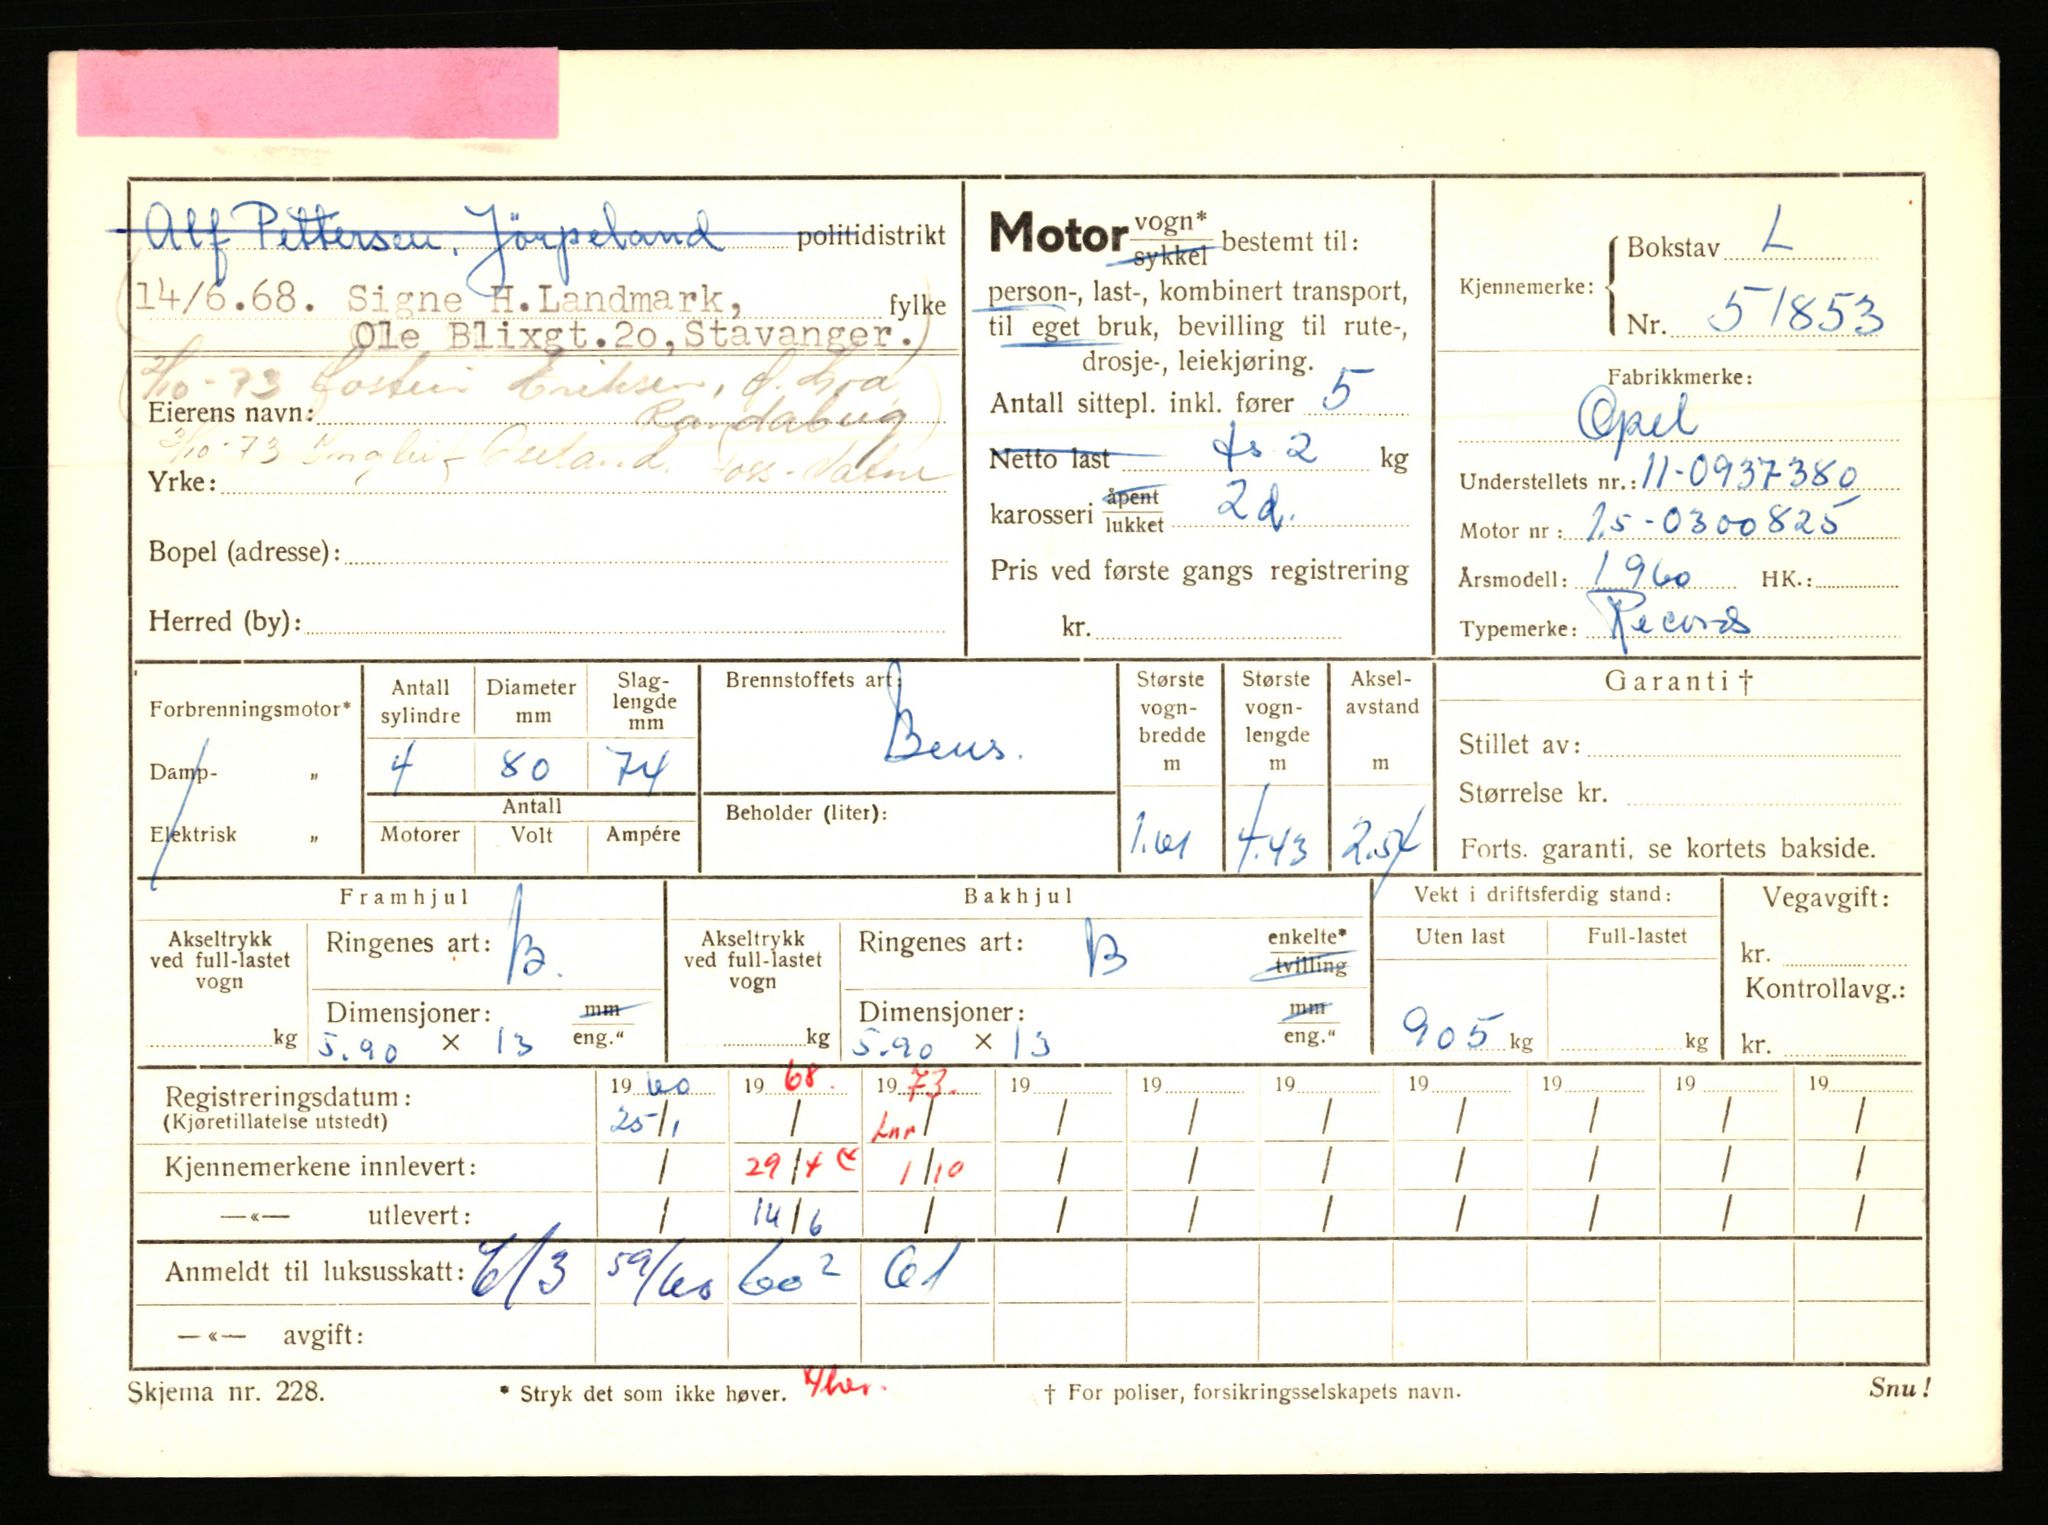 Alf Pettersen, Jörpeland politidistrikt
14/6.68. Signe H. Landmark, fylke
Ole Blixgt.20, Stavanger.
2/10-73 Jostein Eriksen,
Eierens navn: Randaberg
3/10-73
Yrke:
Bopel (adresse):
Herred (by):
Motor vogn* sykkel bestemt til:
person-, last-, kombinert transport,
til eget bruk, bevilling til rute-,
drosje-, leiekjøring.
Antall sittepl. inkl. fører 5
Netto last fs 2 kg
karosseri åpent lukket 2d.
Pris ved første gangs registrering
kr.
Kjennemerke: Bokstav L
Nr. 51853
Fabrikkmerke:
Opel
Understellets nr.: 11-0937380
Motor nr: 1.5-0300825
Årsmodell: 1960 HK.:
Typemerke: Record
Forbrenningsmotor*
Damp- „
Elektrisk „
Antall sylindre Diameter mm Slaglengde mm
4 80 74
Antall
Motorer Volt Ampére
Brennstoffets art:
Bens.
Beholder (liter):
Største vogn-bredde m Største vogn-lengde m Aksel-avstand m
1.61 4.43 2.54
Garanti †
Stillet av:
Størrelse kr.
Forts. garanti, se kortets bakside.
Framhjul
Akseltrykk ved full-lastet vogn kg
Ringenes art: B.
Dimensjoner: mm
5.90 × 13 eng."
Bakhjul
Akseltrykk ved full-lastet vogn kg
Ringenes art: B enkelte* tvilling
Dimensjoner: mm
5.90 × 13 eng."
Vekt i driftsferdig stand:
Uten last Full-lastet
905 kg kg
Vegavgift:
kr.
Kontrollavg.:
kr.
19 60 19 68. 19 73. 19 19 19 19 19 19 19
Registreringsdatum:
(Kjøretillatelse utstedt) 25/1 / Lnr / / / / / / / /
Kjennemerkene innlevert: / 29/4 1/10 / / / / / / /
—«— utlevert: / 14/6 / / / / / / / /
Anmeldt til luksusskatt: 59/60 60² 61
—«— avgift:
Skjema nr. 228. * Stryk det som ikke høver. † For poliser, forsikringsselskapets navn. Snu!